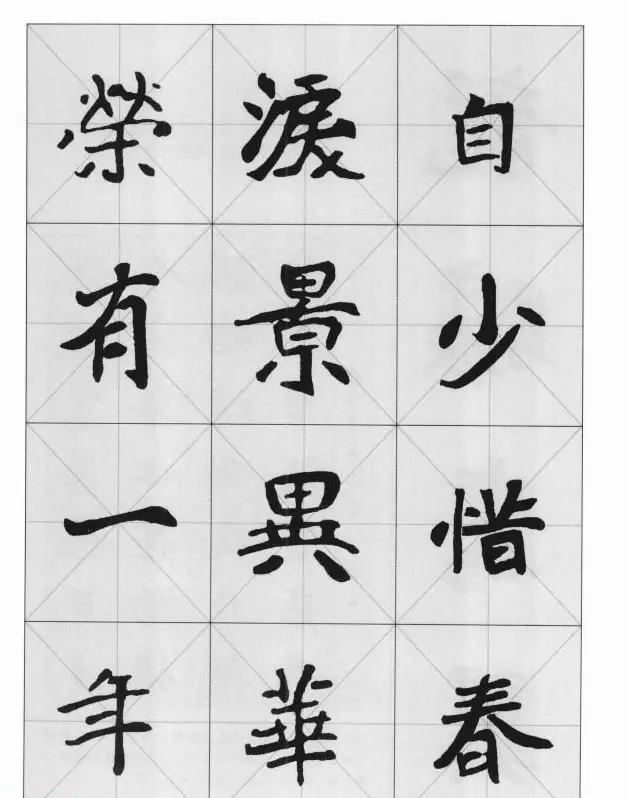 自少惜春
淚景異華
榮有一年